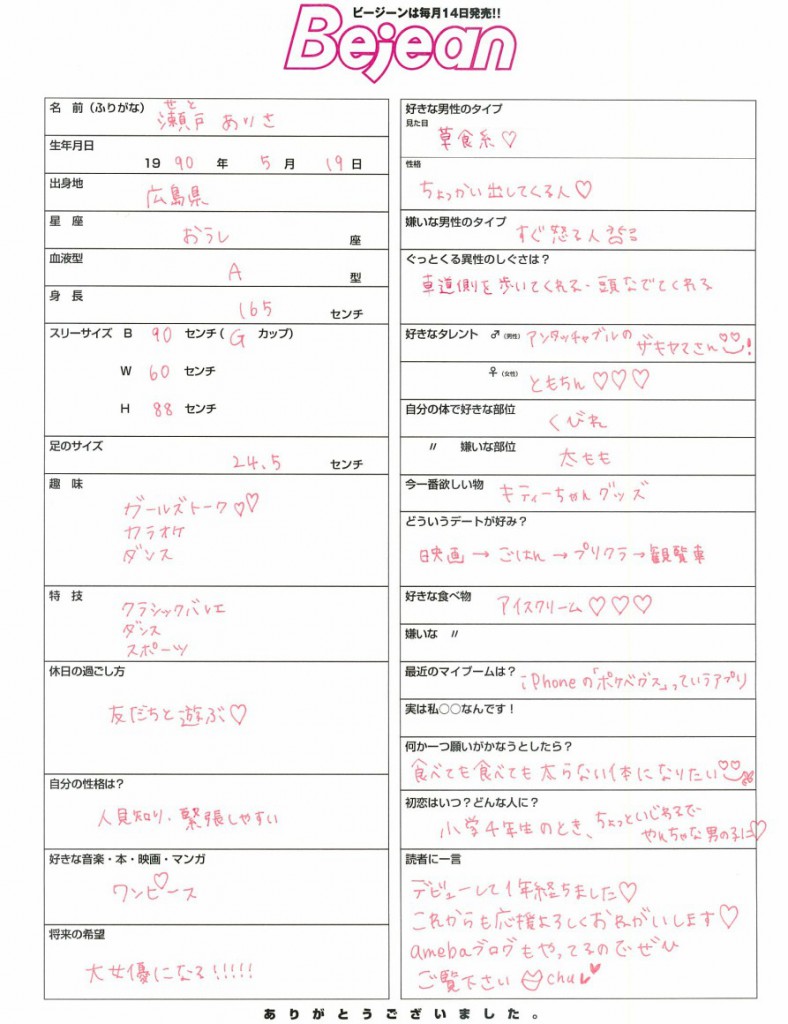 ビージーンは毎月14日発売!!
Bejean
名 前（ふりがな） せと
瀬戸 ありさ
生年月日
1990年 5月 19日
出身地
広島県
星 座
おうし 座
血液型
A 型
身 長
165 センチ
スリーサイズ B 90 センチ（G カップ）
W 60 センチ
H 88 センチ
足のサイズ
24.5 センチ
趣 味
ガールズトーク♡♡
カラオケ
ダンス
特 技
クラシックバレエ
ダンス
スポーツ
休日の過ごし方
友だちと遊ぶ♡
自分の性格は？
人見知り、緊張しやすい
好きな音楽・本・映画・マンガ
ワンピース♡
将来の希望
大女優になる!!!!!
好きな男性のタイプ
見た目
草食系♡
性格
ちょっかい出してくる人♡
嫌いな男性のタイプ
すぐ怒る人
ぐっとくる異性のしぐさは？
車道側を歩いてくれる・頭なでてくれる
好きなタレント ♂（男性） アンタッチャブルの
ザキヤマさん!
♀（女性） ともちん♡♡♡
自分の体で好きな部位
くびれ
〃 嫌いな部位
太もも
今一番欲しい物 キティーちゃんグッズ
どういうデートが好み？
映画→ごはん→プリクラ→観覧車
好きな食べ物
アイスクリーム♡♡♡
嫌いな 〃
最近のマイブームは？ iPhoneの「ポケベガス」っていうアプリ
実は私○○なんです！
何か一つ願いがかなうとしたら？
食べても食べても太らない体になりたい
初恋はいつ？どんな人に？
小学4年生のとき、ちょっといじわるで
やんちゃな男の子に♡
読者に一言
デビューして1年経ちました♡
これからも応援よろしくおねがいします♡
amebaブログもやってるのでぜひ
ご覧下さい chu♥
ありがとうございました。